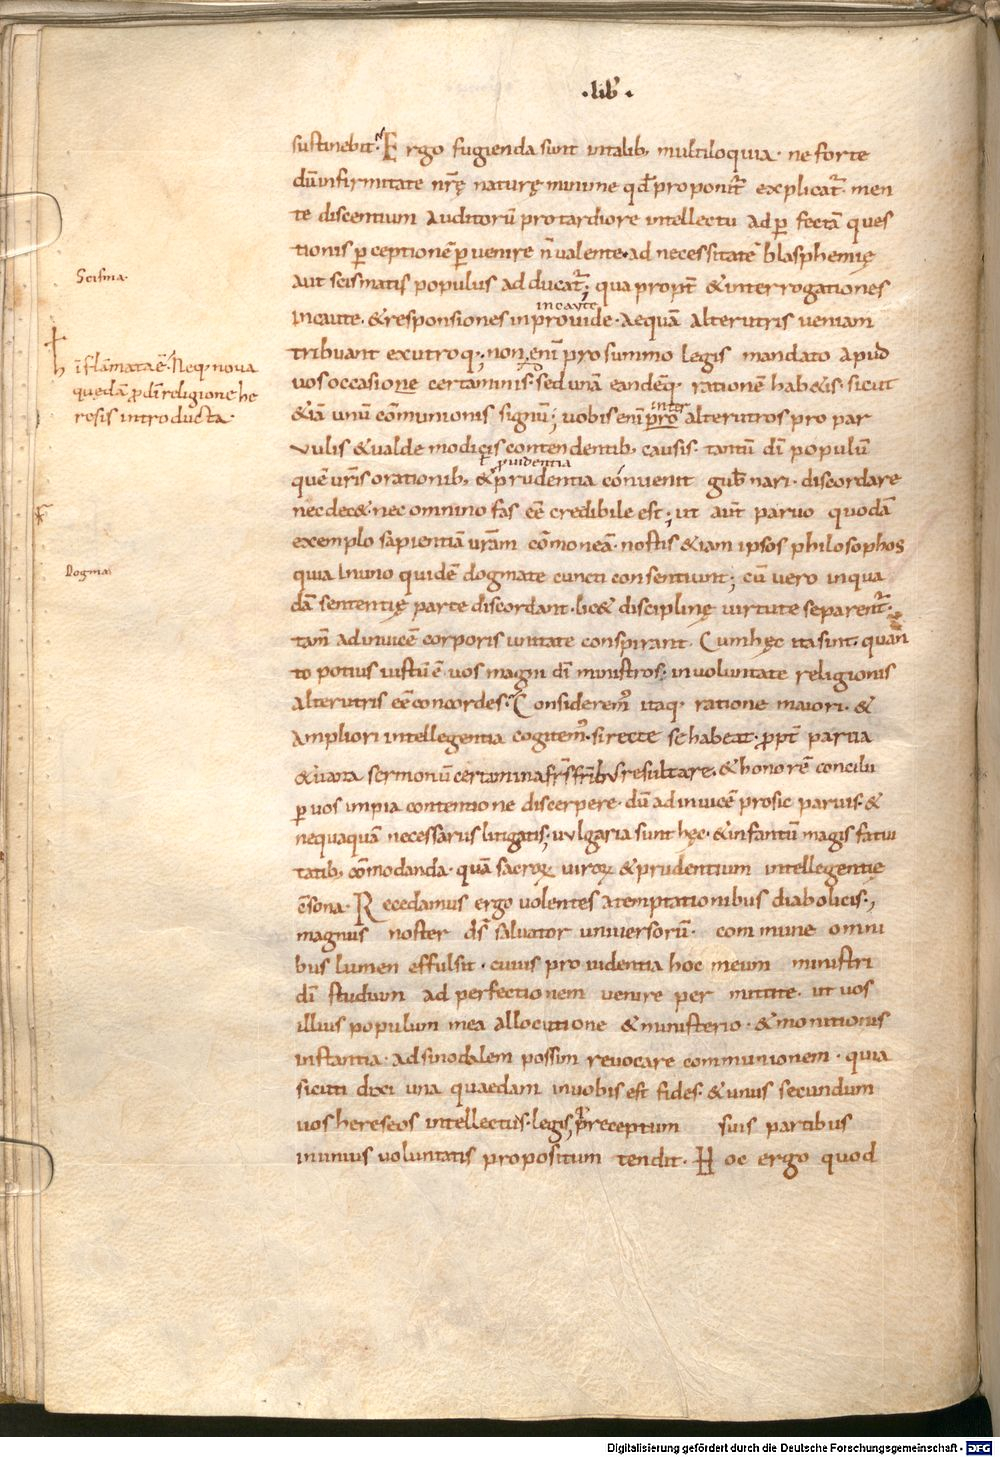 ·lib̄·
sustinebit·; Ergo fugienda sunt intalib; multiloquia· ne forte
dū infirmitate nr̄ę naturę minime qd̄ proponit͛ explicat͛· men
te discentium auditorū pro tardiore intellectu ad ꝑfectā ques
tionis ꝑceptionē ꝑvenire n̄ valente· ad necessitatē blasphemię
aut scismatis populus adducat͛; qua propt̄ & interrogationes
Scisma·
incaute
incaute· & responsiones inprovide· aequā alterutris veniam
tribuant ex utroq·; non enī pro summo legis mandato apud
vos occasione certaminis· sed unā eandēq· rationē habetis· sicut
hī flāmata ē· Neq· nova
quędā ꝓ dī religione he
resis introducta·
inter
&iā unū cōmunionis signū; vobis enī pro alterutros pro par
vulis & valde modicis contendentib; causis· tantū dī populū
ꝓvidentia
quē vr̄is orationib; & prudentia convenit gub̄nari· discordare
nec dec&· nec omnino fas ēē credibile est; ut aūt parvo quodā
exemplo sapientiā vr̄am cōmoneā· nostis &iam ipsos philosophos
quia in uno quidē dogmate cuncti consentiunt; cū vero in qua
Dogma
dā sententię parte discordant· lic& disciplinę virtute separent͛·
tam̄ ad invicē corporis unitate conspirant· Cum hęc ita sint· quan
to potius iustū ē vos magni dī ministros· in voluntate religionis
alterutris ēē concordes· Consideremꝰ itaq· ratione maiori· &
ampliori intellegentia cogitemꝰ· si recte se habeat· ꝓpt̄ parva
& vana sermonū certamina fr̄s fr̄ibus resultare· & honorē concilii
ꝑ vos impia contentione discerpere· dū ad invicē pro sic parvis· &
nequaquā necessariis litigatis; vulgaria sunt hęc· & infantū magis fatui
tatib; cōmodanda· quā sacroꝝ viroꝝ & prudentium intellegentię
ēsona· Recedamus ergo volentes a temptationibus diabolicis;
magnus noster d͞s salvator universorū· commune omni
bus lumen effulsit· cuius providentia hoc meum ministri
dī studium ad perfectionem venire permittite· ut vos
illius populum mea allocutione & ministerio· & monitionis
instantia· ad sinodalem possim revocare communionem· quia
sicuti dixi una quaedam in vobis est fides· & unus secundum
vos hereseos intellectus· legis preceptum suis partibus
in unius voluntatis propositum tendit· Hoc ergo quod
Digitalisierung gefördert durch die Deutsche Forschungsgemeinschaft - DFG